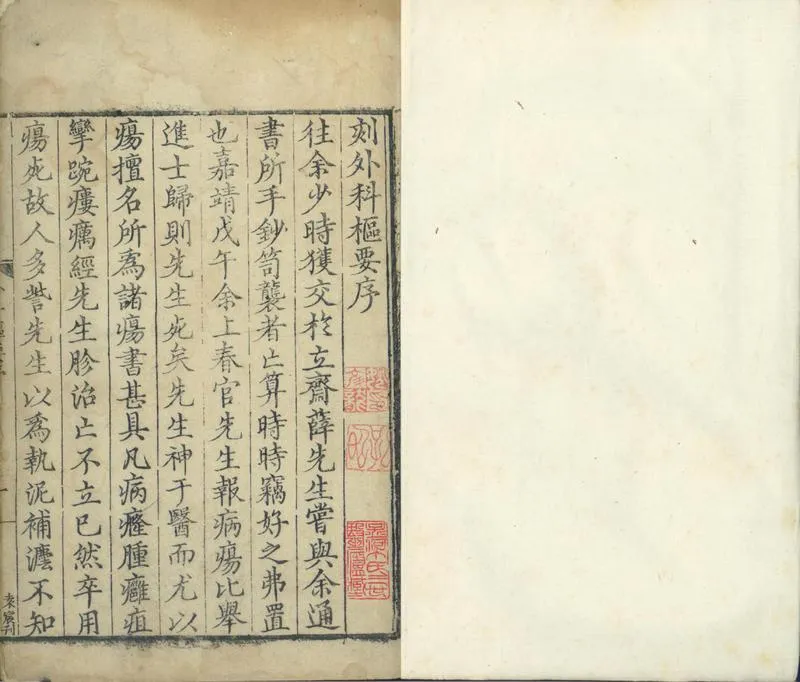 刻外科樞要序
往余少時獲交於立齋薛先生嘗與余通
書所手鈔笥襲者亡算時時竊好之弗置
也嘉靖戊午余上春官先生報病瘍比舉
進士歸則先生死矣先生神于醫而尤以
瘍擅名所為諸瘍書甚具凡病癃腫癰疽
攣踠瘻癘經先生胗治亡不立已然卒用
瘍死故人多訾先生以為執泥補瀍不知